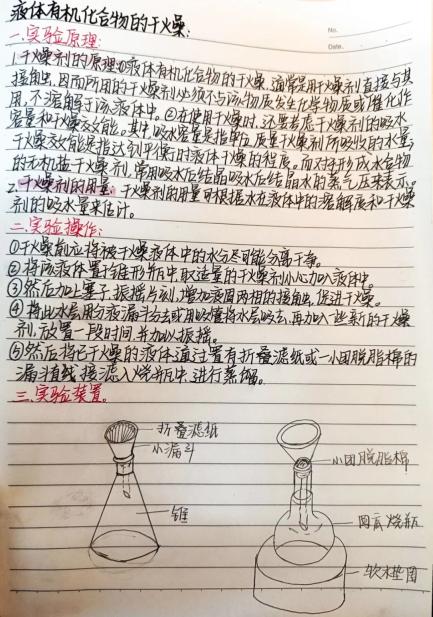 液体有机化合物的干燥:
No.
Date.
一.实验原理:
1.干燥剂的原理:①液体有机化合物的干燥,通常是用干燥剂直接与其
接触,因而所用的干燥剂必须不与该物质发生化学物质或催化作
用,不溶解于该液体中。②在使用干燥时,还要考虑干燥剂的吸水
容量和干燥效能。其中吸水容量是指单位质量干燥剂所吸收的水量,
干燥效能是指达到平衡时液体干燥的程度。而对于形成水合物
的无机盐干燥剂,常用吸水后结晶吸水后结晶水的蒸气压来表示。
2.干燥剂的用量:干燥剂的用量可根据水在液体中的溶解度和干燥
剂的吸水量来估计。
二.实验操作:
①干燥前应将被干燥液体中的水分尽可能分离干净。
②将该液体置于锥形瓶中取适量的干燥剂小心加入液体中。
③然后加上塞子,振摇片刻,增加液固两相的接触,促进干燥。
④将出水层用分液漏斗分去或用吸管将水层吸去,再加入一些新的干燥
剂,放置一段时间,并加以振摇。
⑤然后将已干燥的液体通过置有折叠滤纸或一小团脱脂棉的
漏斗直接滤入烧瓶中,进行蒸馏。
三.实验装置。
折叠滤纸
小漏斗
锥
小团脱脂棉
圆底烧瓶
软木垫圈